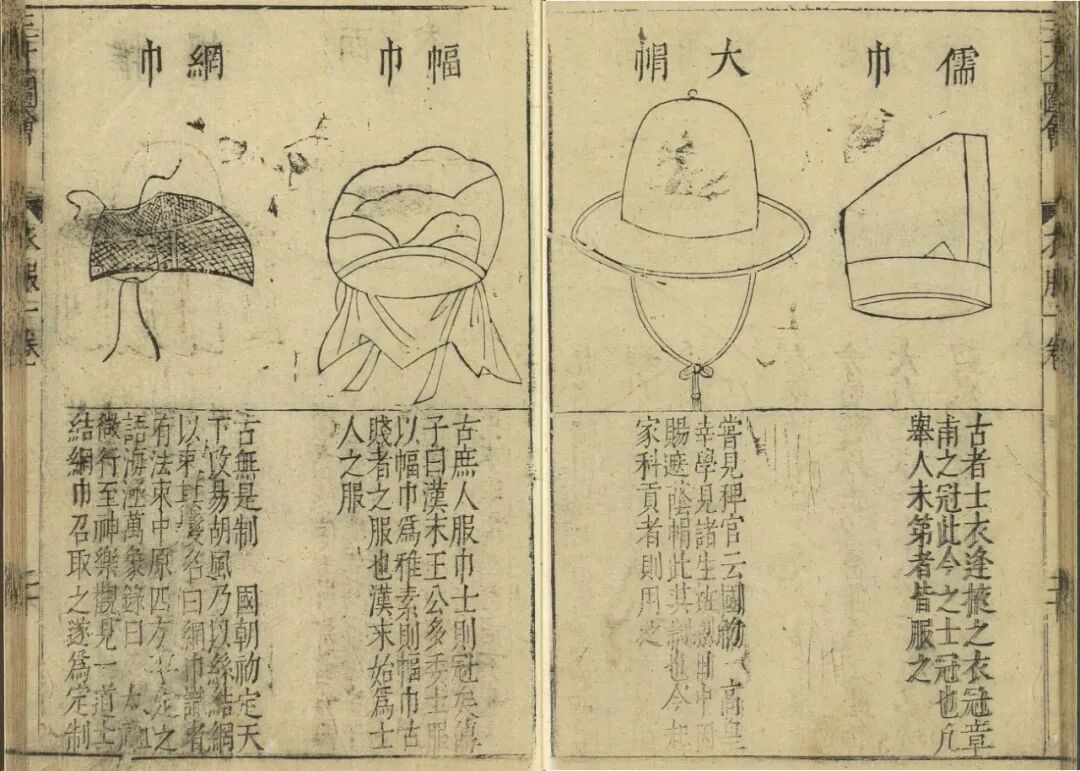 儒巾
古者士衣逢掖之衣冠章
甫之冠此今之士冠也凡
舉人未第者皆服之
大帽
嘗見稗官云國初 高皇
幸學見諸生班烈日中因
賜遮蔭帽此其制也今起
家科貢者則用之
三才圖會
衣服一卷
幅巾
古庶人服巾士則冠矣傅
子曰漢末王公多委士服
以幅巾爲雅素則幅巾古
賤者之服也漢末始爲士
人之服
網巾
古無是制 國朝初定天
下改易胡風乃以絲結網
以束其髮名曰網巾識者
有法束中原四方平定之
語海涵萬象錄曰 太祖
微行至神樂觀見一道士
結網巾召取之遂爲定制
三才圖會
衣服一卷